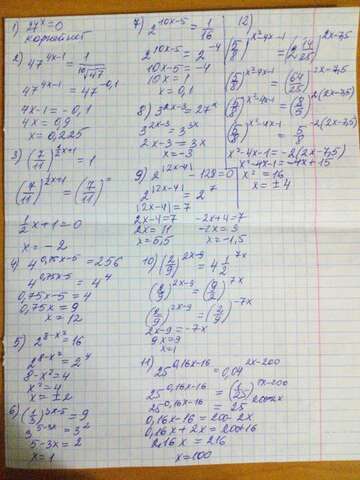 1) 27^x = 0
корней нет
2) 47^(4x-1) = 1/¹⁰√47
47^(4x-1) = 47^(-0,1)
4x-1 = -0,1
4x = 0,9
x = 0,225
3) (7/11)^(½x+1) = 1
(7/11)^(½x+1) = (7/11)^0
½x+1 = 0
x = -2
4) 4^(0,75x-5) = 256
4^(0,75x-5) = 4^4
0,75x-5 = 4
0,75x = 9
x = 12
5) 2^(8-x²) = 16
2^(8-x²) = 2^4
8-x² = 4
x² = 4
x = ±2
6) (1/3)^(3x-5) = 9
3^(5-3x) = 3²
5-3x = 2
x = 1
7) 2^(10x-5) = 1/16
2^(10x-5) = 2^(-4)
10x-5 = -4
10x = 1
x = 0,1
8) 3^(2x-3) = 27^x
3^(2x-3) = 3^(3x)
2x-3 = 3x
x = -3
9) 2^|2x-4| - 128 = 0
2^|2x-4| = 2^7
|2x-4| = 7
2x-4 = 7 -2x+4 = 7
2x = 11 -2x = 3
x = 5,5 x = -1,5
10) (2/9)^(2x-9) = 4½^(7x)
(2/9)^(2x-9) = (9/2)^(7x)
(2/9)^(2x-9) = (2/9)^(-7x)
2x-9 = -7x
9x = 9
x = 1
11) 25^(0,16x-16) = 0,04^(2x-200)
25^(0,16x-16) = (1/25)^(2x-200)
25^(0,16x-16) = 25^(200-2x)
0,16x-16 = 200-2x
0,16x+2x = 200+16
2,16x = 216
x = 100
12)
(5/8)^(x²-4x-1) = (2 14/25)^(2x-7,5)
(5/8)^(x²-4x-1) = (64/25)^(2x-7,5)
(5/8)^(x²-4x-1) = (8/5)^(2(2x-7,5))
(5/8)^(x²-4x-1) = 5/8^(-2(2x-7,5))
x²-4x-1 = -2(2x-7,5)
x²-4x-1 = -4x+15
x² = 16
x = ±4